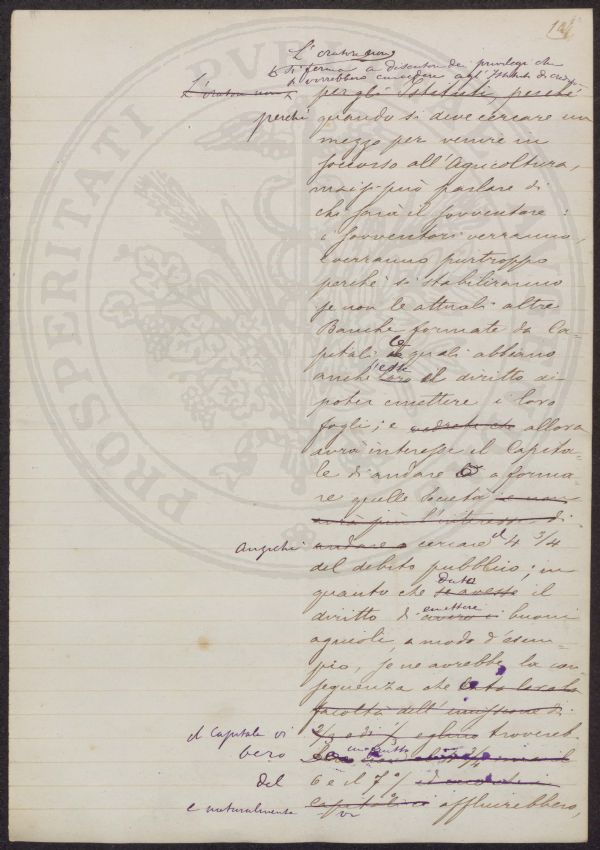 14
L'oratore non
si ferma a discutere dei privilegi che
si vorrebbero concedere agl'Istituti di credito
L'oratore non per gli Istituti, perché
perché quando si deve cercare un
mezzo per venire in
soccorso all'Agricoltura,
mai si può parlare di
che farà il sovventore:
i sovventori verranno,
e verranno purtroppo
perché si stabiliranno
se non le attuali altre
Banche formate da Ca-
pitali le quali abbiano
anch'esse il diritto di
poter emettere i loro
fogli; e allora
avrà interesse il Capita-
le di andare a forma-
re quelle Società e non
avrà più l'interesse di
anziché andare a cercare il 4 3/4
del debito pubblico; in
quanto che data il
diritto di emettere buoni
agricoli, a modo d'esem-
pio, se ne avrebbe la con-
seguenza che
facoltà dell'emissione di
il Capitale vi 2/3 o di 1/3 eglino trovereb-
bero
del 6 e il 7 %
e naturalmente vi affluirebbero,
PROSPERITATI PUBLICAE AUGENDAE